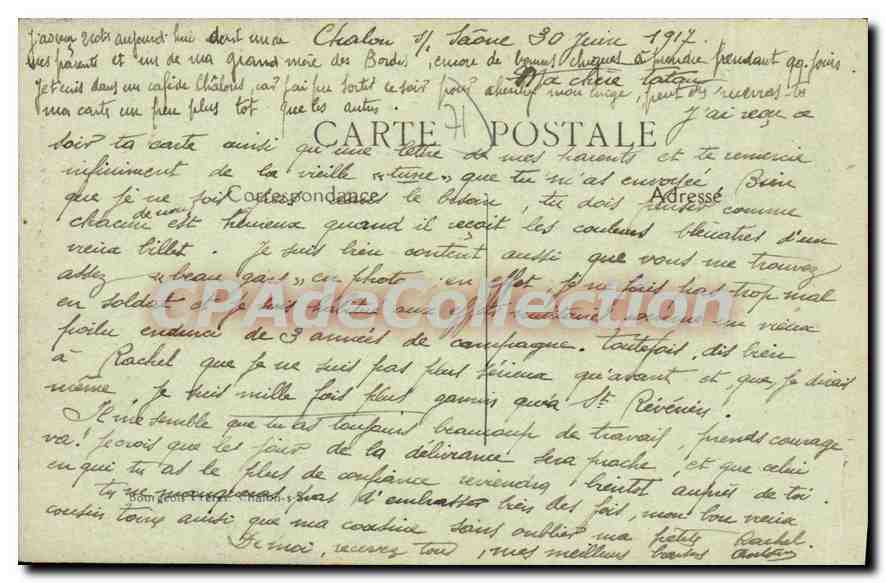 Chalon s/ Saône 30 Juin 1917.
J'ai reçu aujourd'hui
mes parents et un de ma grand mère des Bordes, encore de bonnes choses à prendre pendant qq. jours
Je suis dans un café de Châlons, car j'ai pu sortir ce soir pour
ma carte un peu plus tot que les autres.
Ma chère tatan
J'ai reçu ce
71
CARTE POSTALE
soir ta carte ainsi qu'une lettre de mes parents et te remercie
infiniment de la vieille "tune" que tu m'as envoyée. Bien
Correspondance
Adresse
que je ne sois pas dans le besoin, tu dois penser comme
chacun de nous est heureux quand il reçoit les couleurs bleuatres d'un
vieux billet. Je suis bien content aussi que vous me trouvez
assez "beau gars" en photo, en effet, je ne suis pas trop mal
en soldat et je suis habitué aux effets militaires comme un vieux
poilu endurci de 3 années de campagne. Toutefois, dis bien
à Rachel que je ne suis pas plus sérieux qu'avant et que, je dirais
même, je suis mille fois plus gamin qu'à St Révérien.
Il me semble que tu as toujours beaucoup de travail, prends courage
va! Je crois que les jours de la délivrance sera proche, et que celui
en qui tu as le plus de confiance reviendra bientot auprès de toi.
Bourgeois Frères, Chalon-s-S.
Tu ne manqueras pas d'embrasser bien des fois, mon bon vieux
cousin Toine ainsi que ma cousine sans oublier ma petite Rachel.
De moi, recevez tous, mes meilleurs baisers
CPAdeCollection